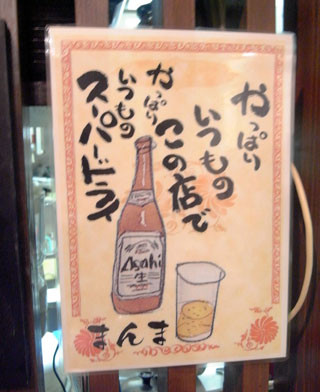 やっぱり
いつもの
この店で
やっぱり
いつもの
スーパードライ
Asahi
生
まんま